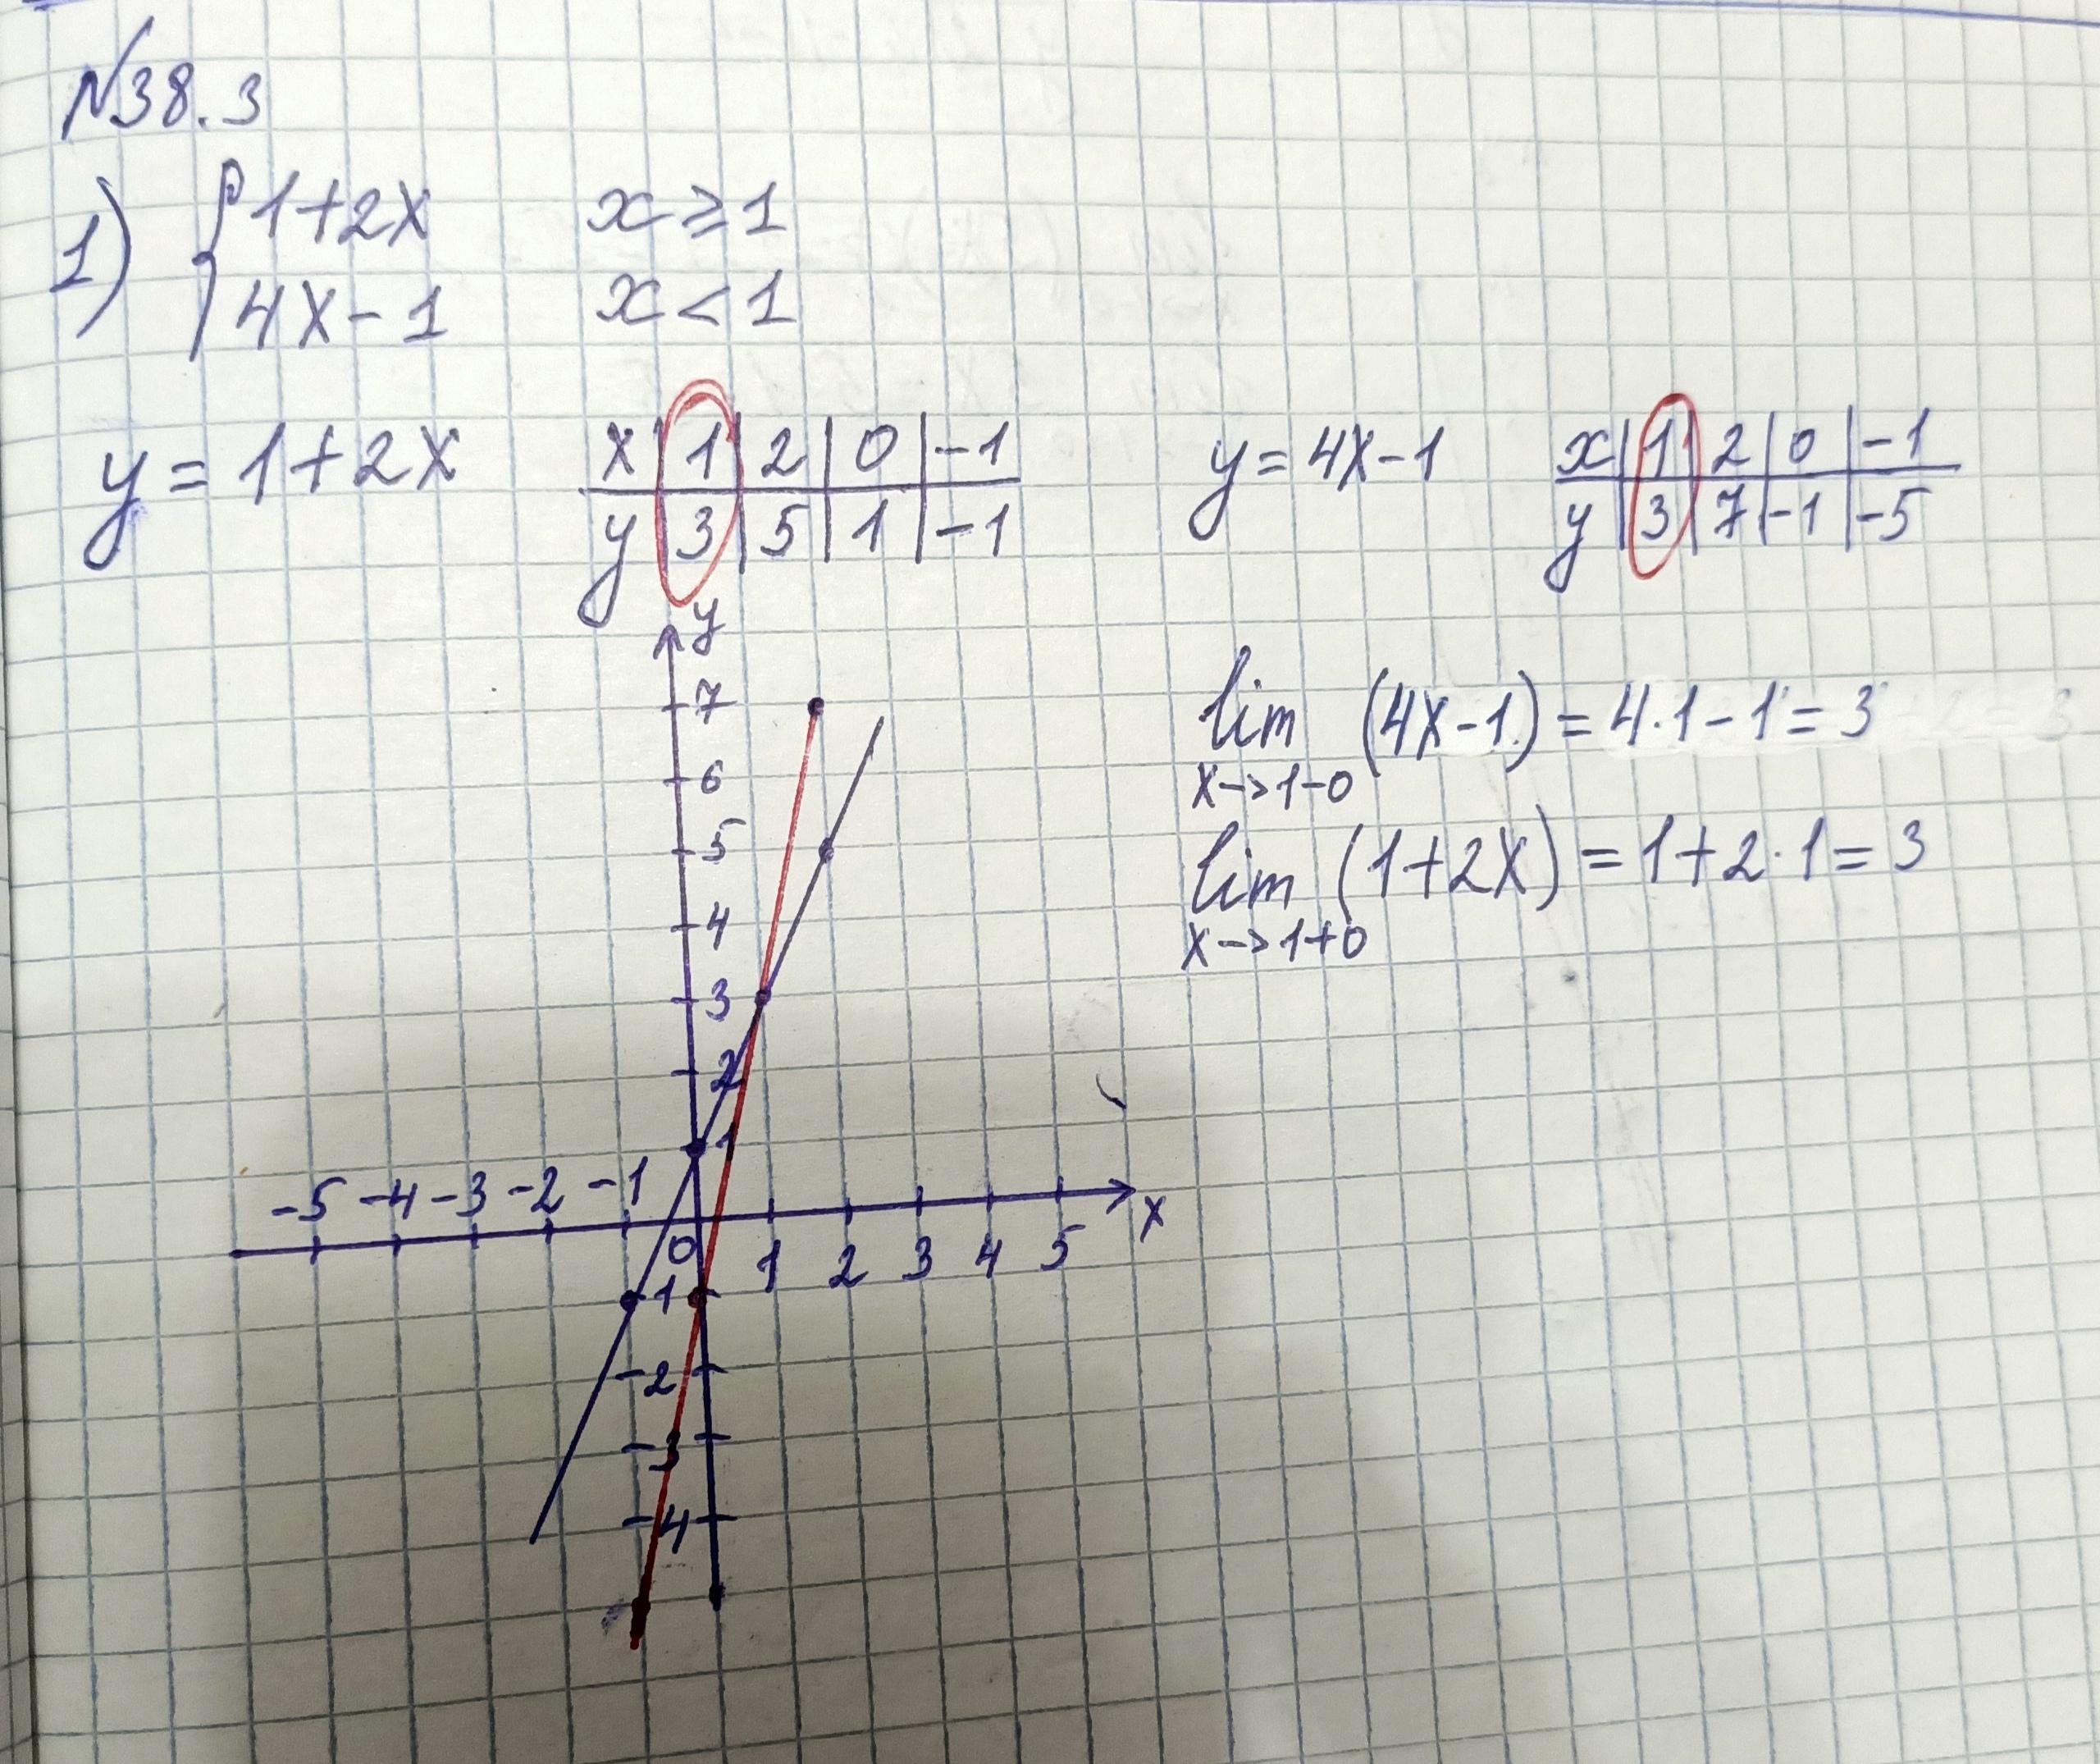 N38.3
1) { 1+2x x ≥ 1
4x-1 x < 1
y = 1+2x
x | 1 | 2 | 0 | -1
y | 3 | 5 | 1 | -1
y = 4x-1
x | 1 | 2 | 0 | -1
y | 3 | 7 | -1 | -5
lim (4x-1) = 4·1-1 = 3
x->1-0
lim (1+2x) = 1+2·1 = 3
x->1+0
y
7
6
5
4
3
2
1
-5 -4 -3 -2 -1
x
0 1 2 3 4 5
-1
-2
-3
-4